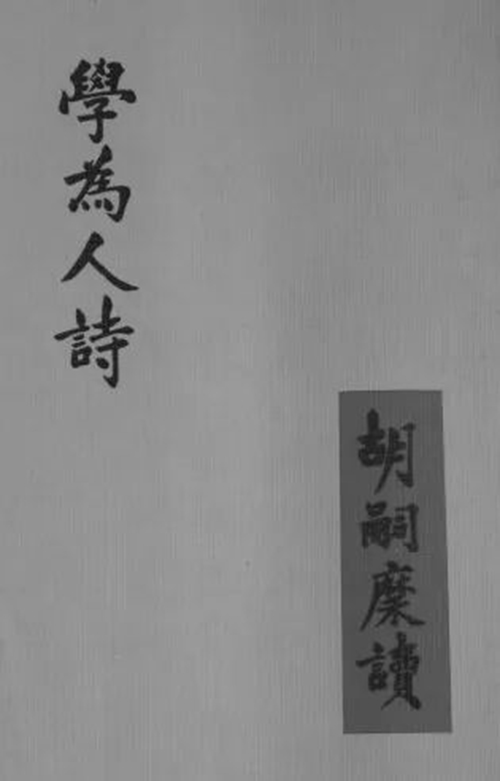 學為人詩
胡嗣穈讀